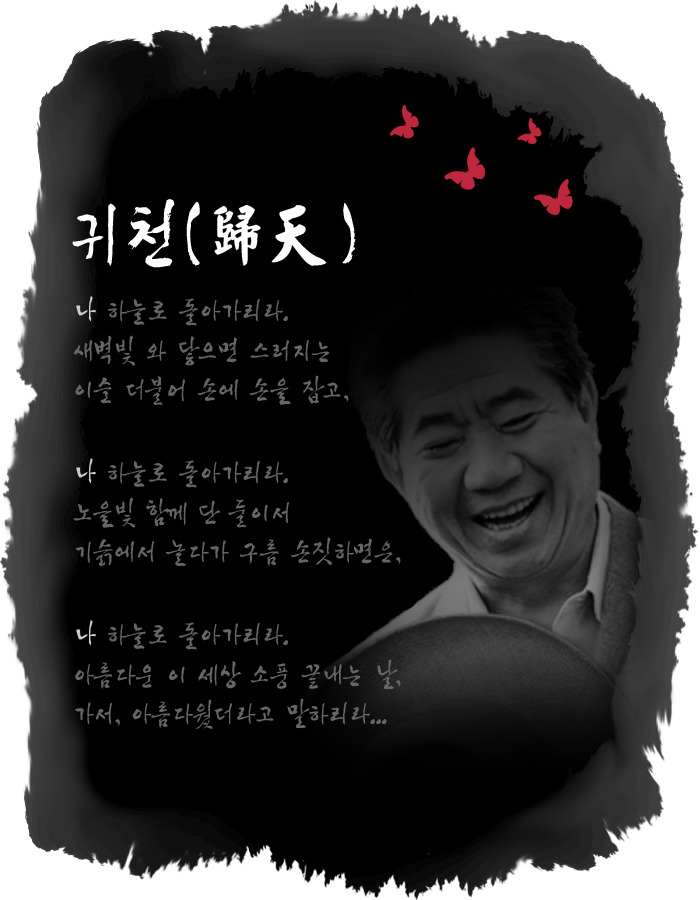 귀천(歸天)
나 하늘로 돌아가리라.
새벽빛 와 닿으면 스러지는
이슬 더불어 손에 손을 잡고,
나 하늘로 돌아가리라.
노을빛 함께 단 둘이서
기슭에서 놀다가 구름 손짓하면은,
나 하늘로 돌아가리라.
아름다운 이 세상 소풍 끝내는 날,
가서, 아름다웠더라고 말하리라...